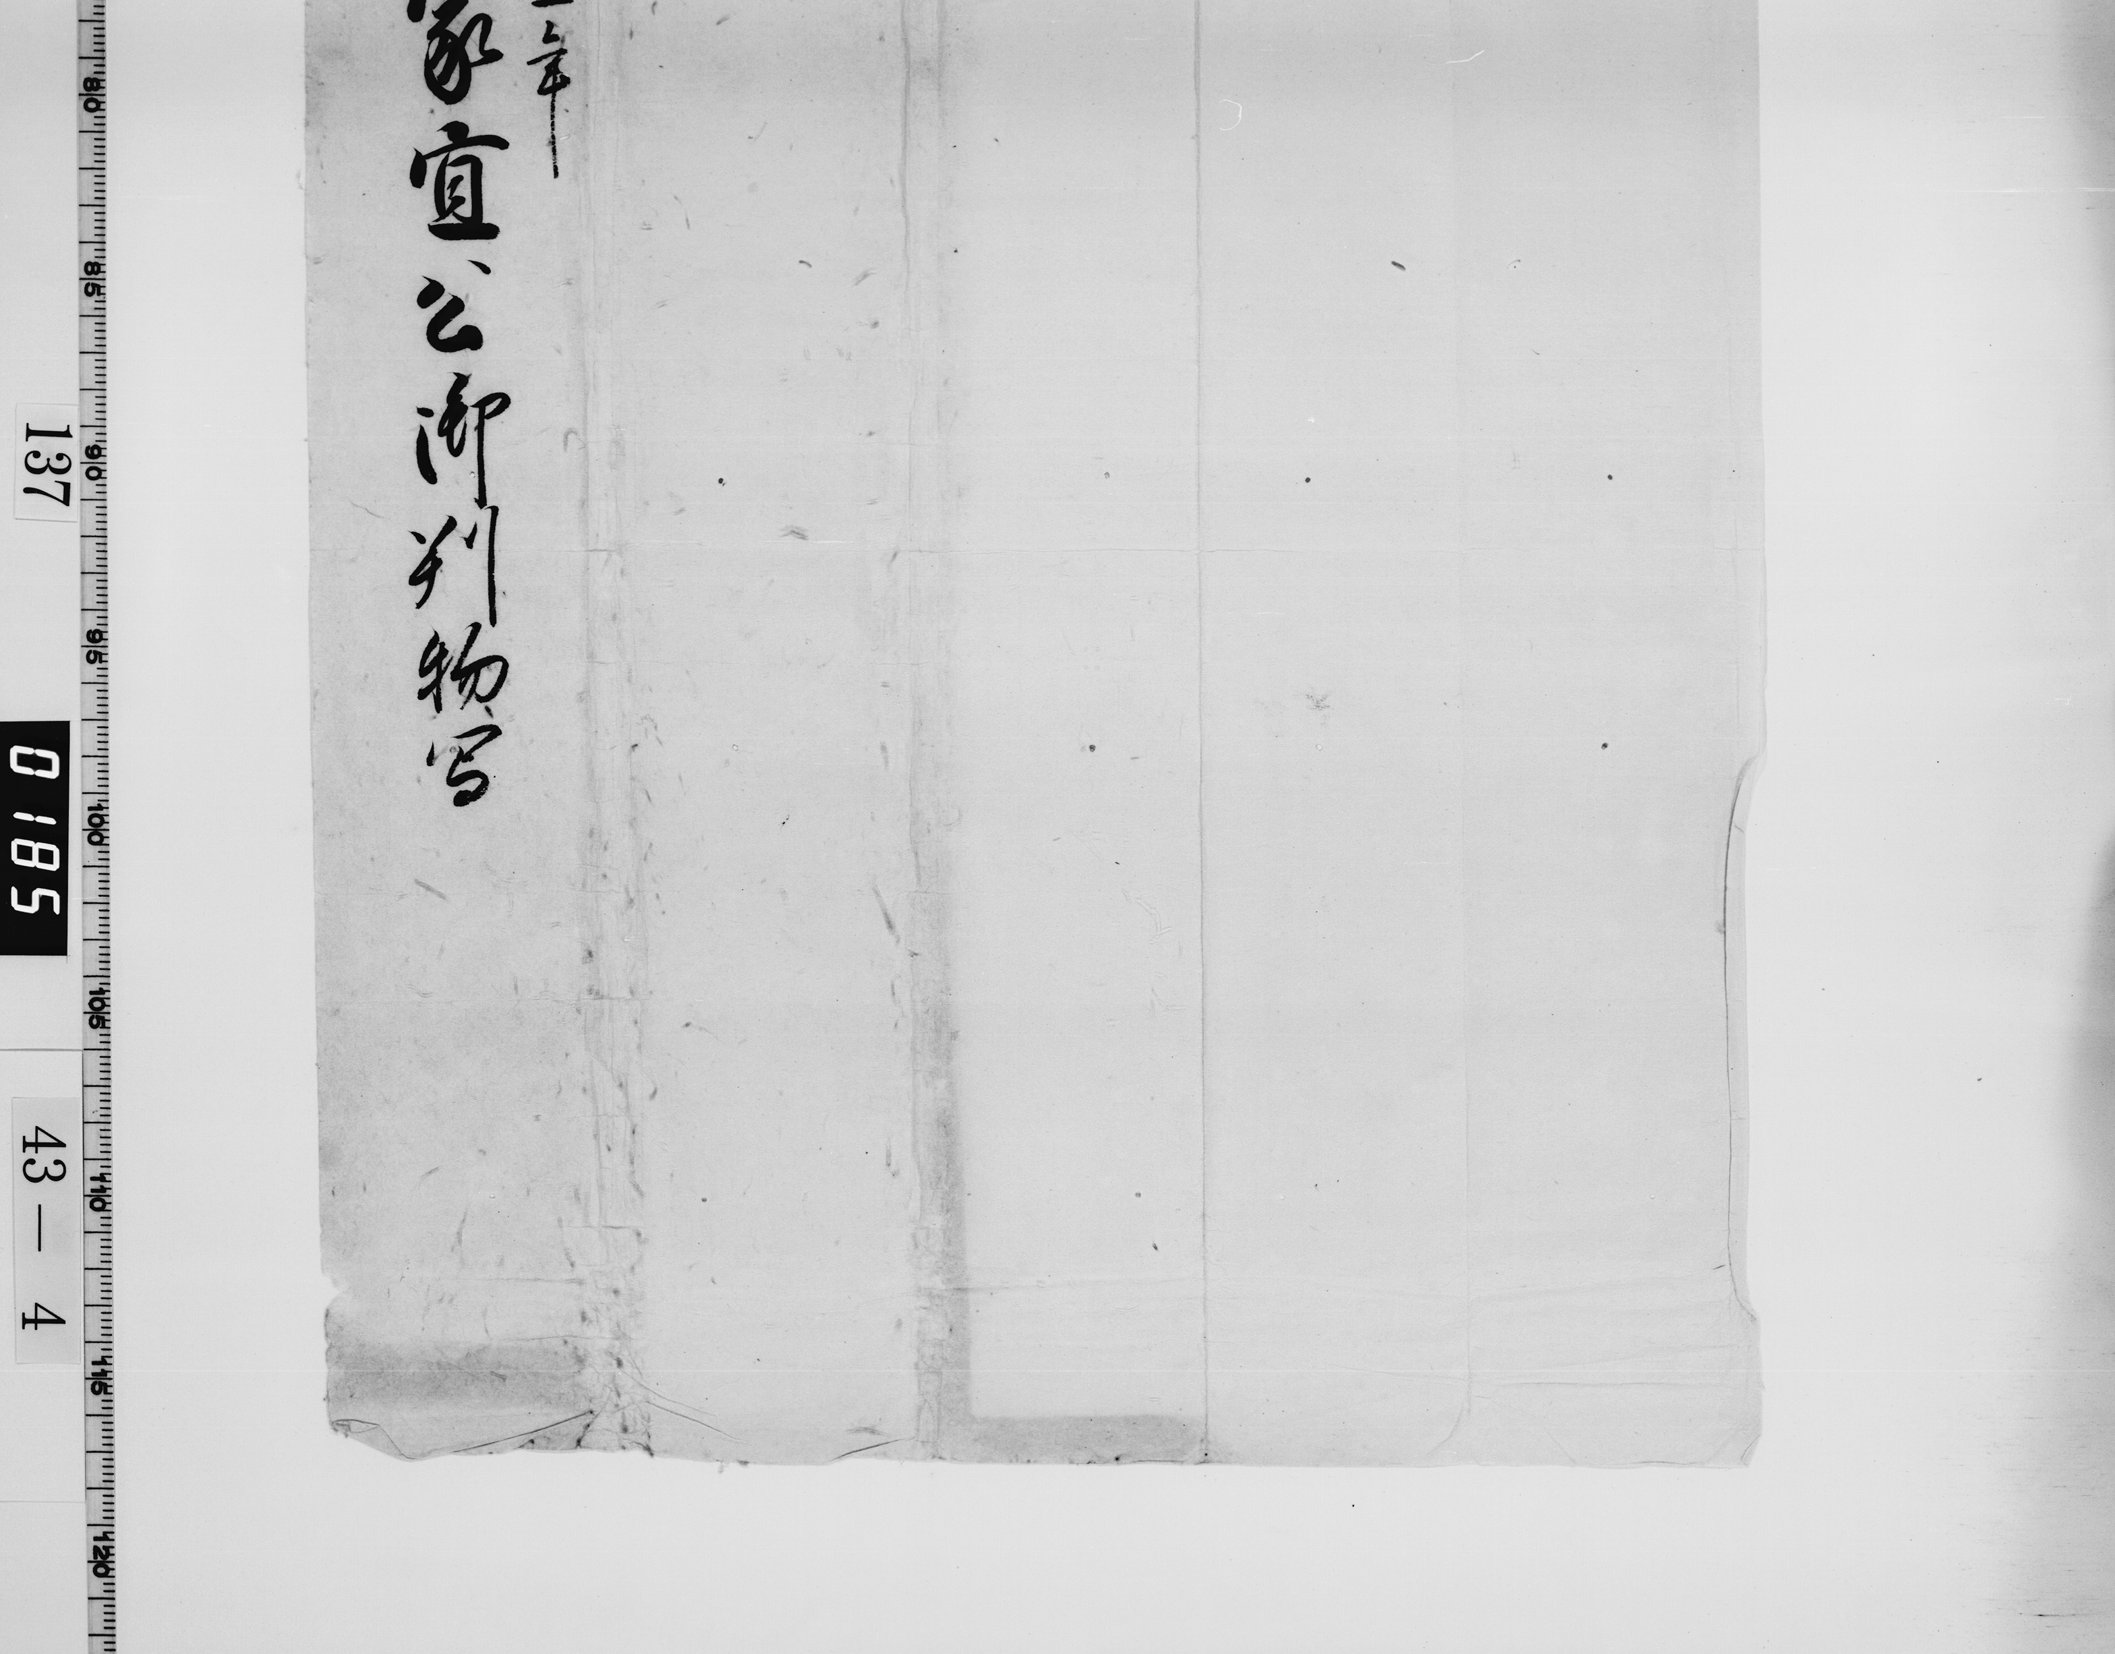 年
家宣公御判物写
137
0185
43—4
80
85
90
95
100
105
110
115
120